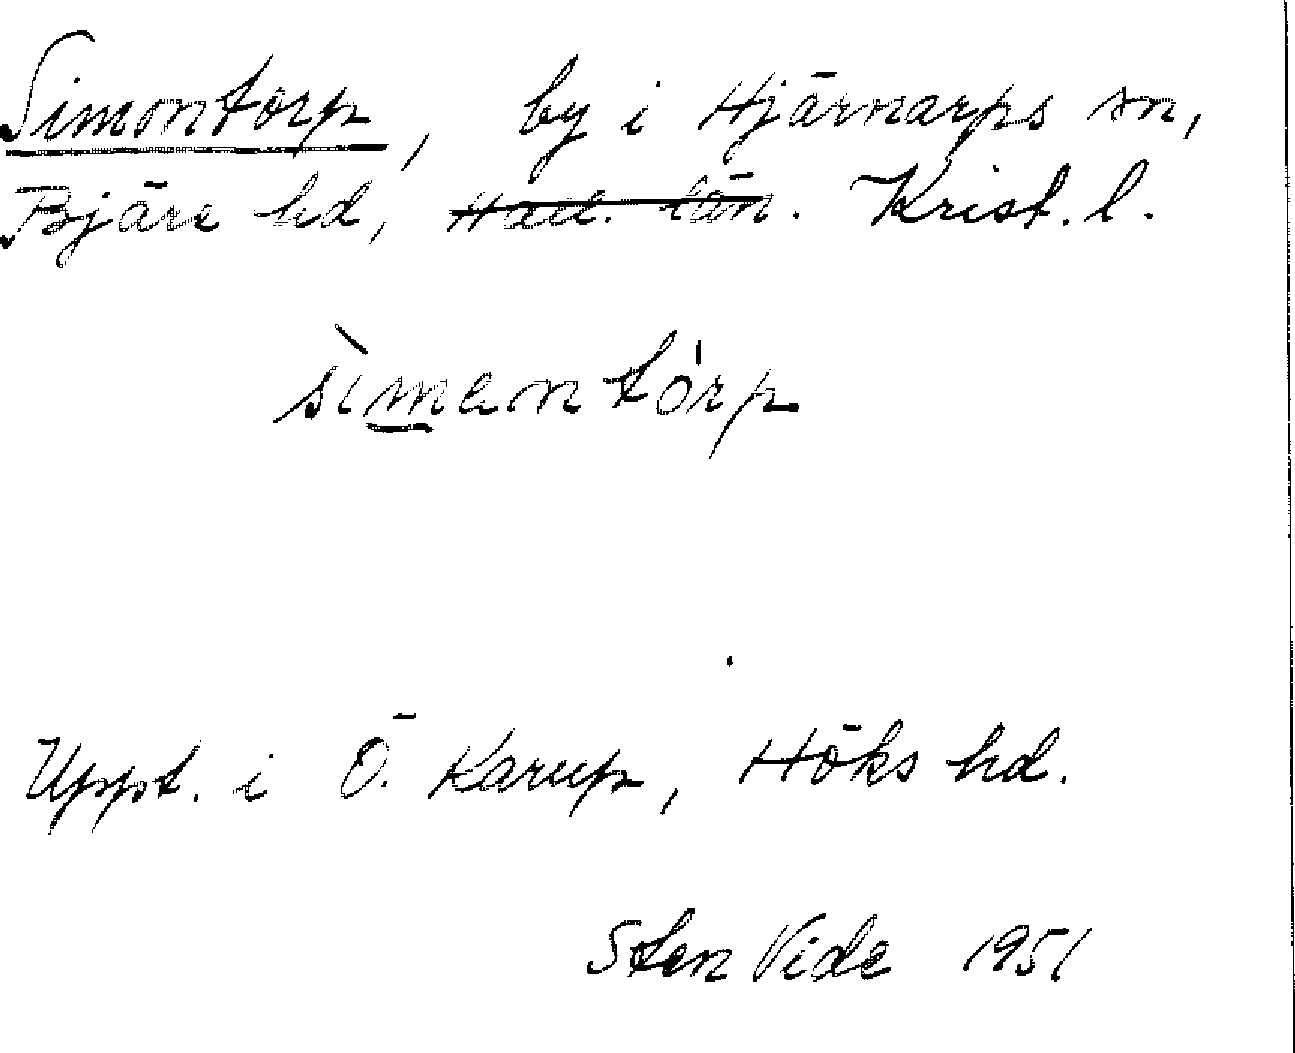 Simontorp, by i Hjärnarps sn,
Bjäre hd, Hall. län. Krist. l.
sìmantórp
Uppt. i Ö. Karup, Höks hd.
Sten Vide 1951